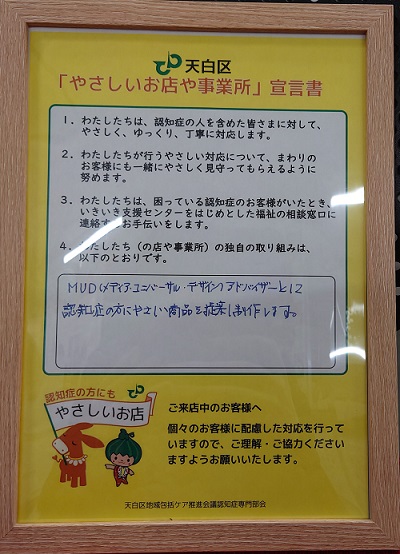 天白区
「やさしいお店や事業所」宣言書
1．わたしたちは、認知症の人を含めた皆さまに対して、
やさしく、ゆっくり、丁寧に対応します。
2．わたしたちが行うやさしい対応について、まわりの
お客様にも一緒にやさしく見守ってもらえるように
努めます。
3．わたしたちは、困っている認知症のお客様がいたとき、
いきいき支援センターをはじめとした福祉の相談窓口に
連絡するお手伝いをします。
4．わたしたち（の店や事業所）の独自の取り組みは、
以下のとおりです。
MUD(メディア・ユニバーサル・デザイン)アドバイザーとして
認知症の方にやさしい商品を提案し制作します。
認知症の方にも
やさしいお店
ご来店中のお客様へ
個々のお客様に配慮した対応を行って
いますので、ご理解・ご協力ください
ますようお願いいたします。
天白区地域包括ケア推進会議認知症専門部会